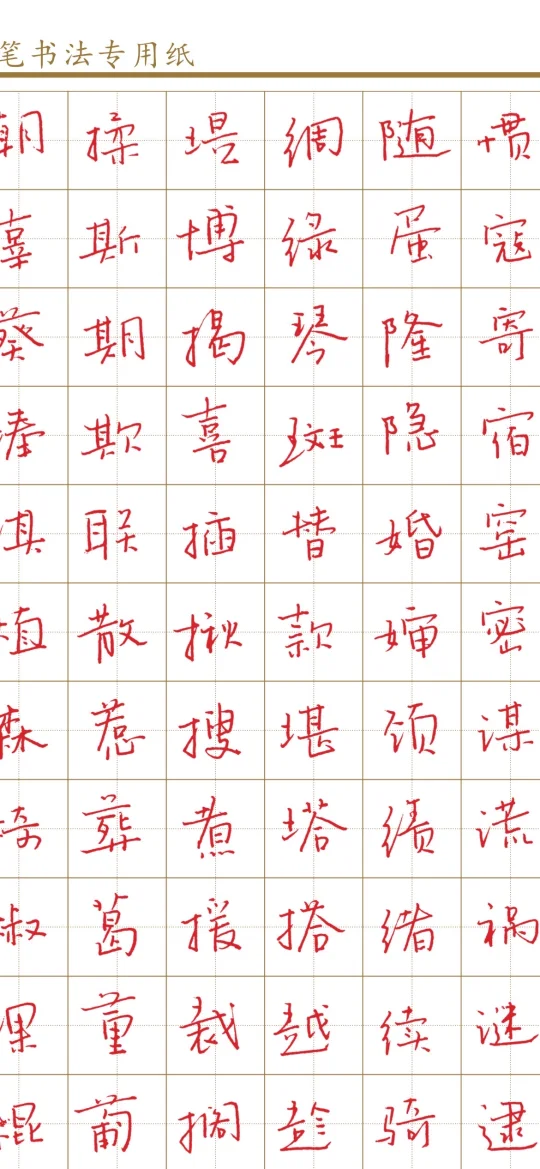 笔书法专用纸
朝揉堤绸随惯
辜斯博绿蛋寇
葵期揭琴隆寄
棒欺喜斑隐宿
棋联插替婚窑
植散揪款婶密
森惹搜堪颈谋
椅葬煮塔绩谎
椒葛援搭绪祸
棵董裁越续谜
棍葡搁趁骑逮